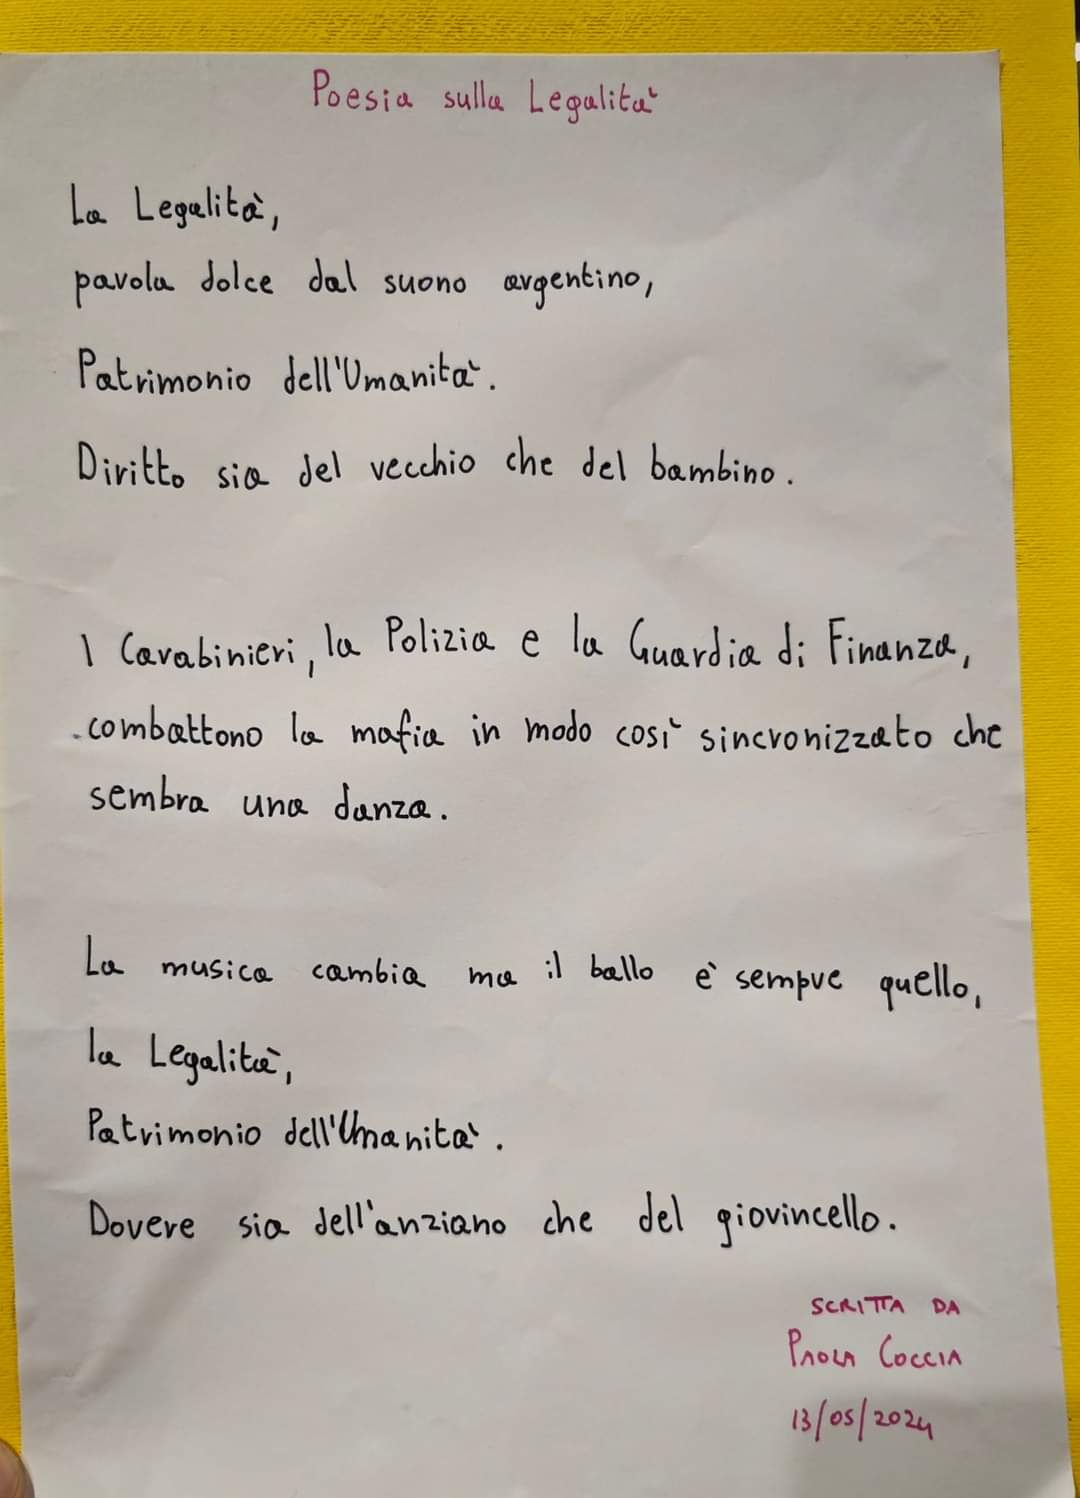 Poesia sulla Legalità
La Legalità,
parola dolce dal suono argentino,
Patrimonio dell'Umanità.
Diritto sia del vecchio che del bambino.
I Carabinieri, la Polizia e la Guardia di Finanza,
combattono la mafia in modo così sincronizzato che
sembra una danza.
La musica cambia ma il ballo è sempre quello,
la Legalità,
Patrimonio dell'Umanità.
Dovere sia dell'anziano che del giovincello.
SCRITTA DA
PAOLA COCCIA
13/05/2024